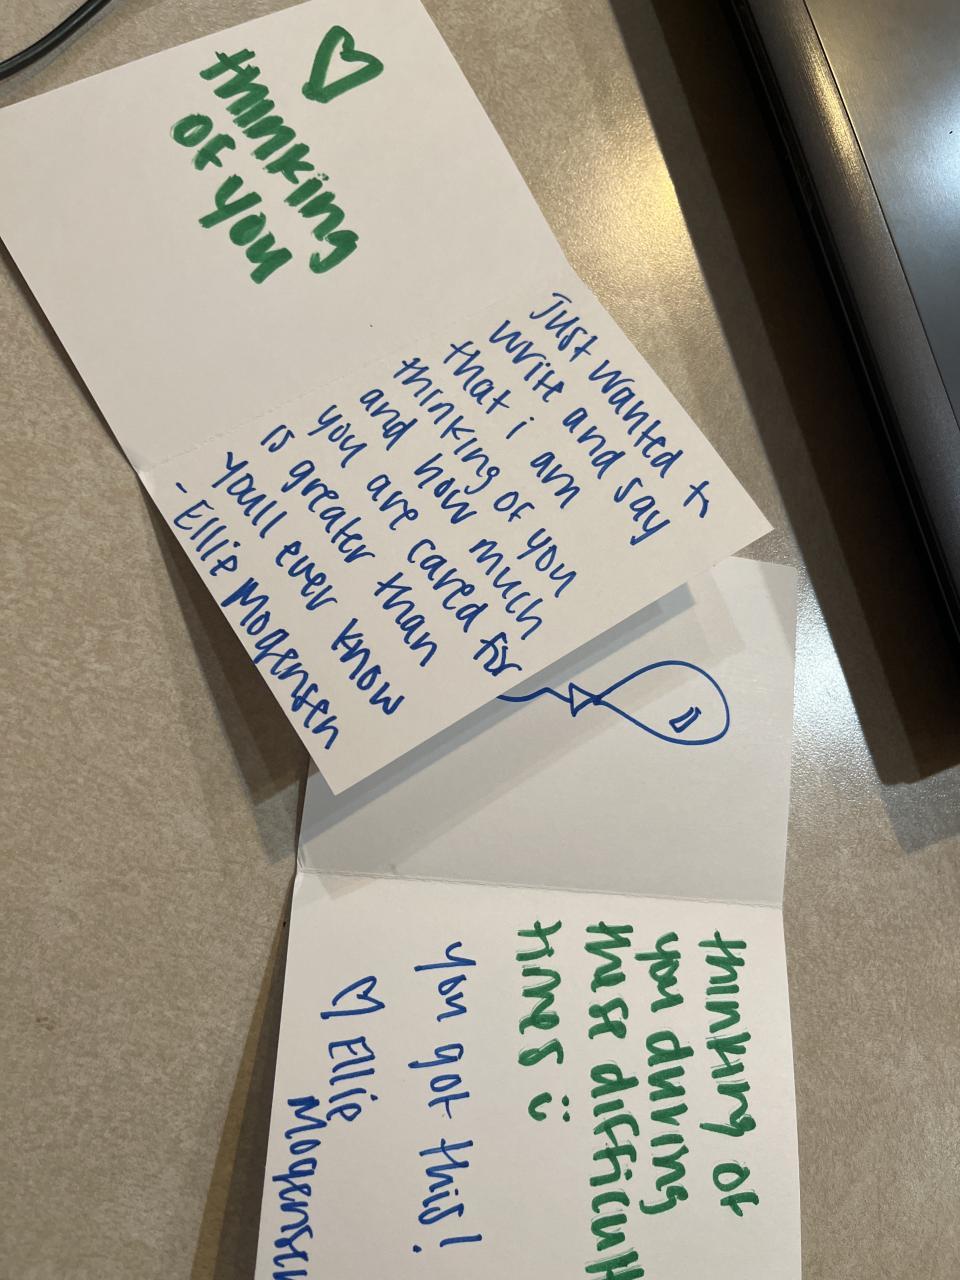 thinking
of you
Just wanted to
write and say
that i am
thinking of you
and how much
you are cared for
is greater than
youll ever know
- Ellie Mogensen
thinking of
you during
these difficult
times
you got this!
Ellie
Mogensen